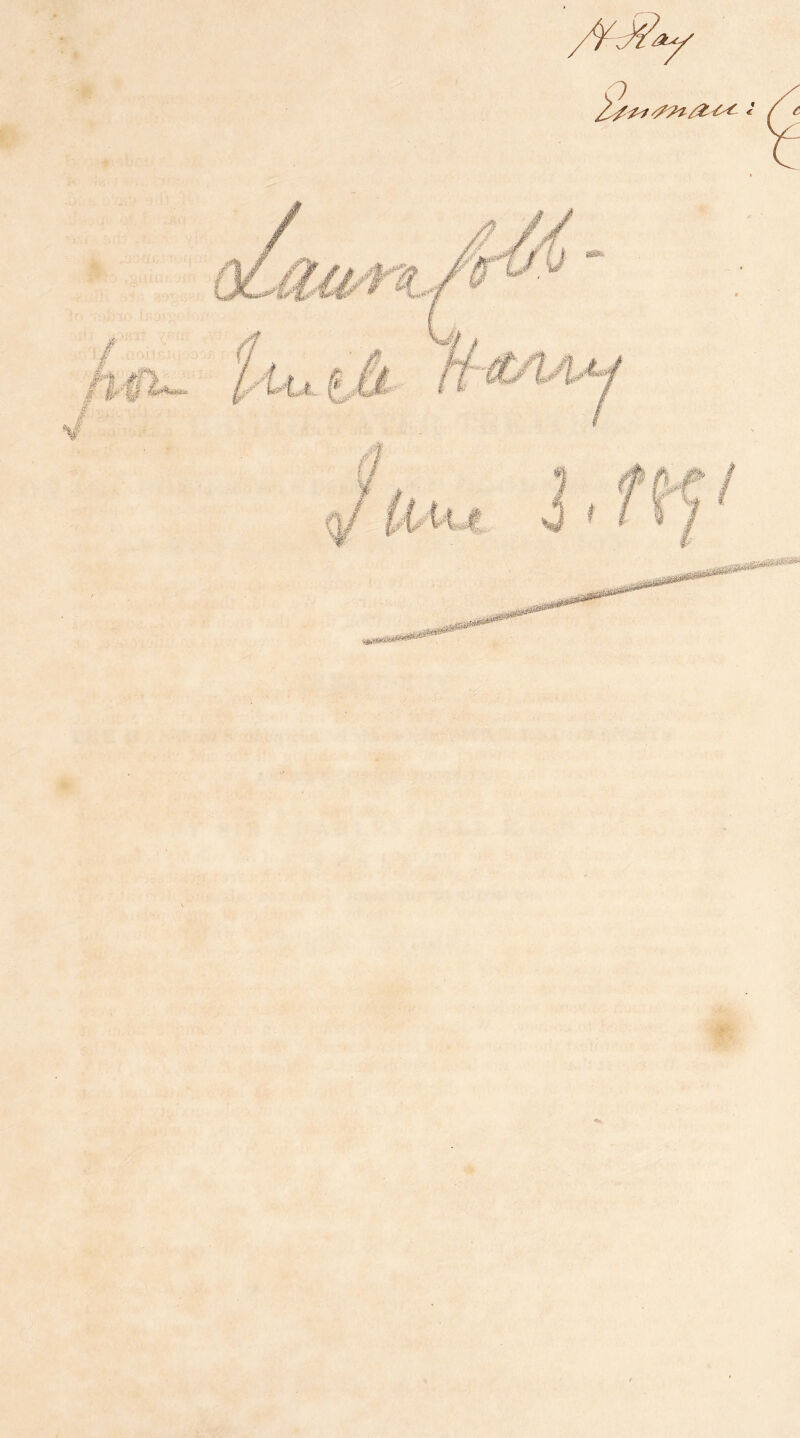 H Ray
Emman: C
Laura Cobb-
from Uncle Harry
June 3. 1891